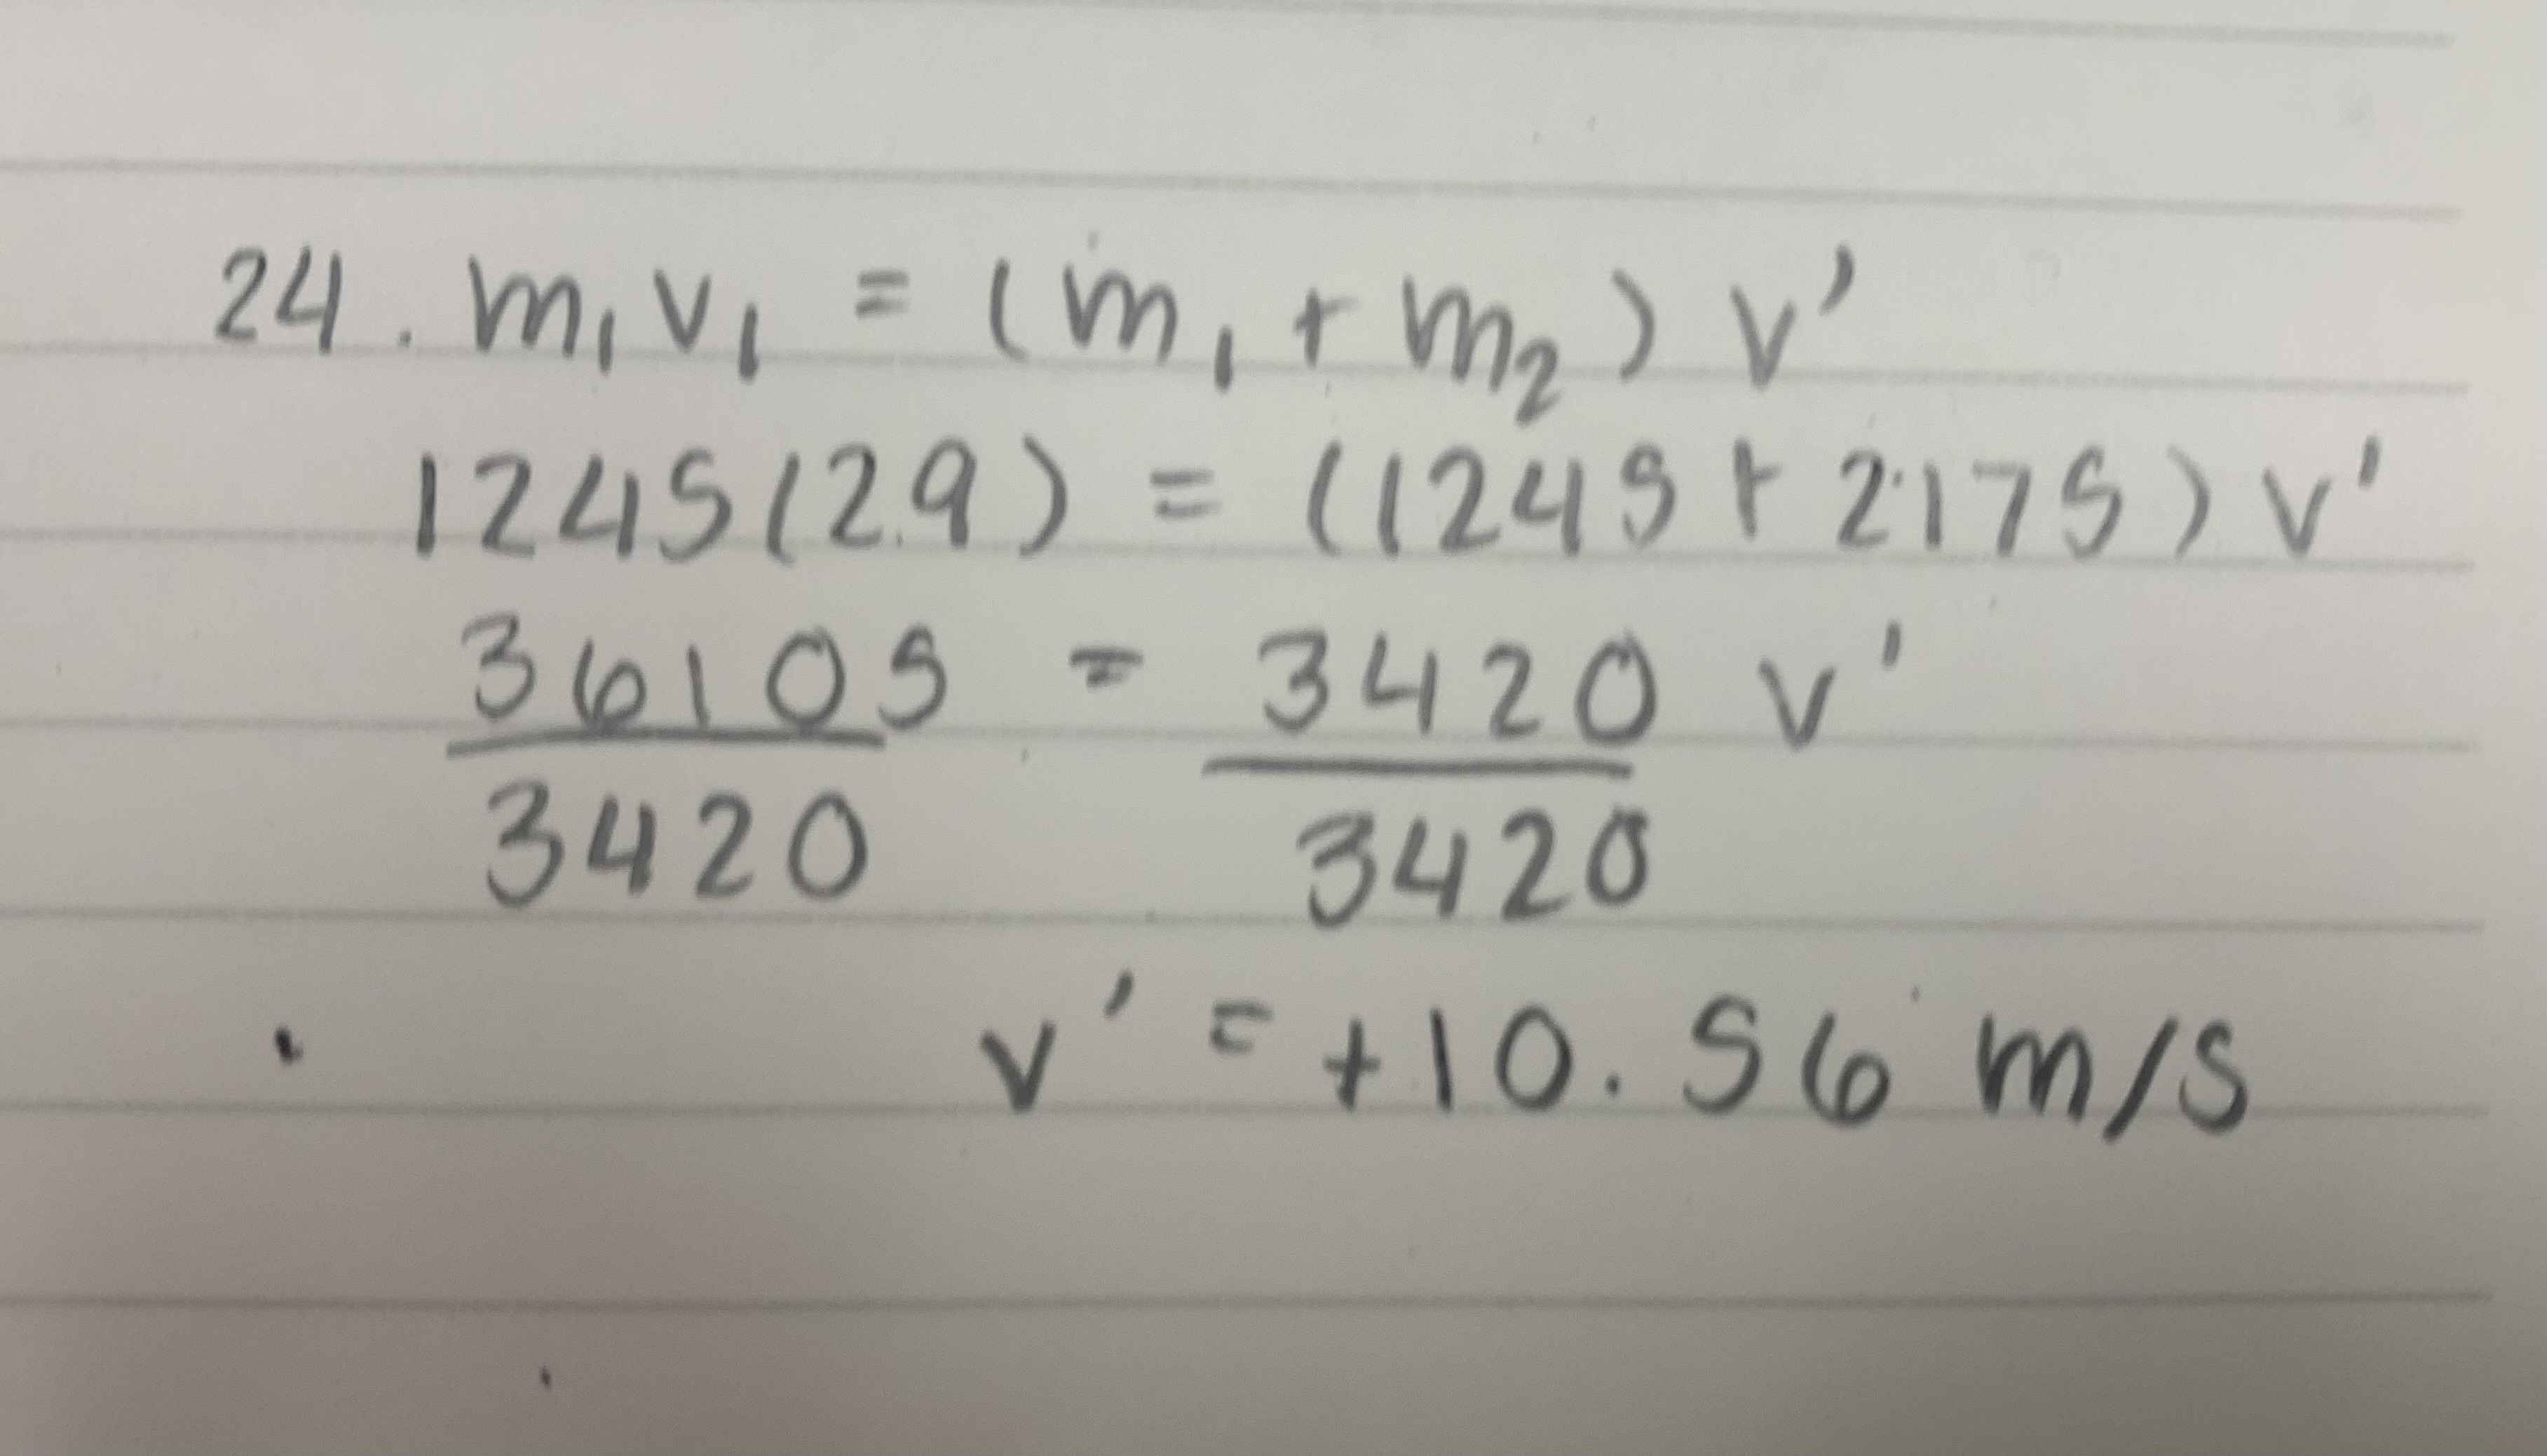 24. m₁v₁ = (m₁ + m₂) v'
1245(29) = (1245 + 2175) v'
36105 = 3420 v'
3420 3420
v' = +10.56 m/s